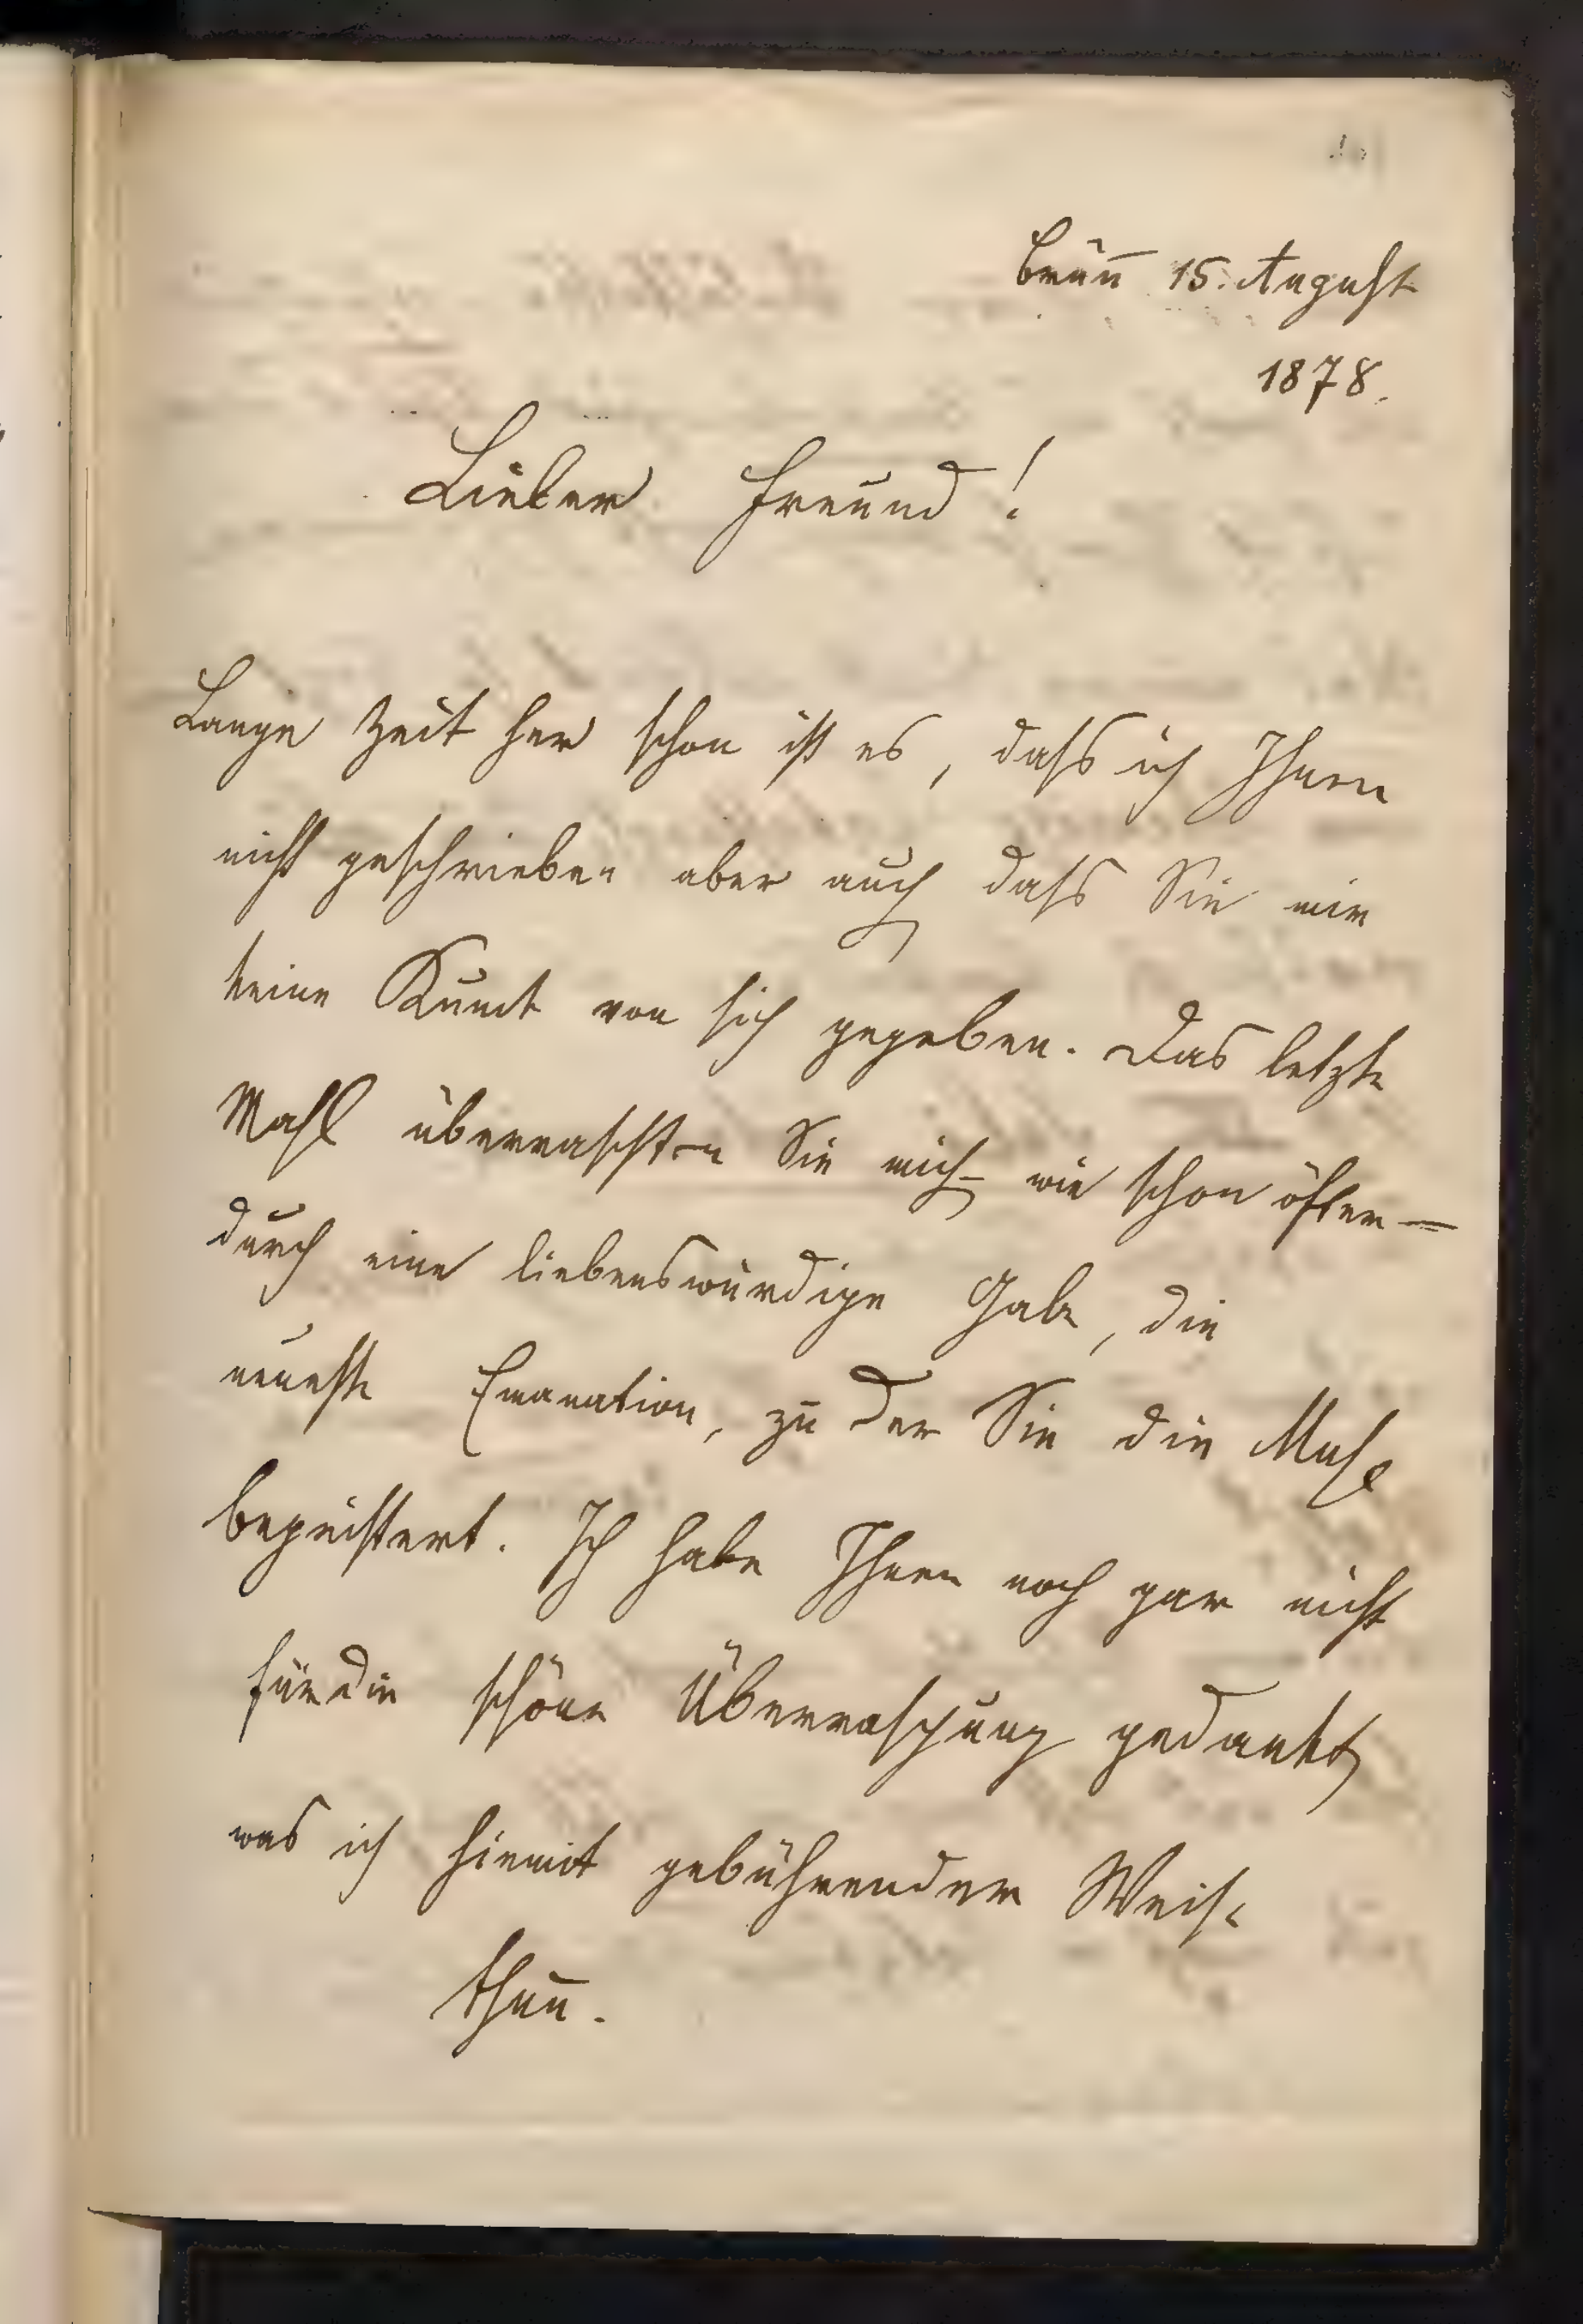 Brünn 15. August
1878.
Lieber Freund!
Lange Zeit her schon ist es, dass ich Ihnen
nicht geschrieben aber auch dass Sie mir
keine Kunde von sich gegeben. Das letzte
Mahl überraschten Sie mich – wie schon öfter –
durch eine liebenswürdige Gabe, die
neueste Emanation, zu der Sie die Muse
begeistert. Ich habe Ihnen noch gar nicht
für die schöne Überraschung gedankt,
was ich hiemit gebührender Weise
thue.